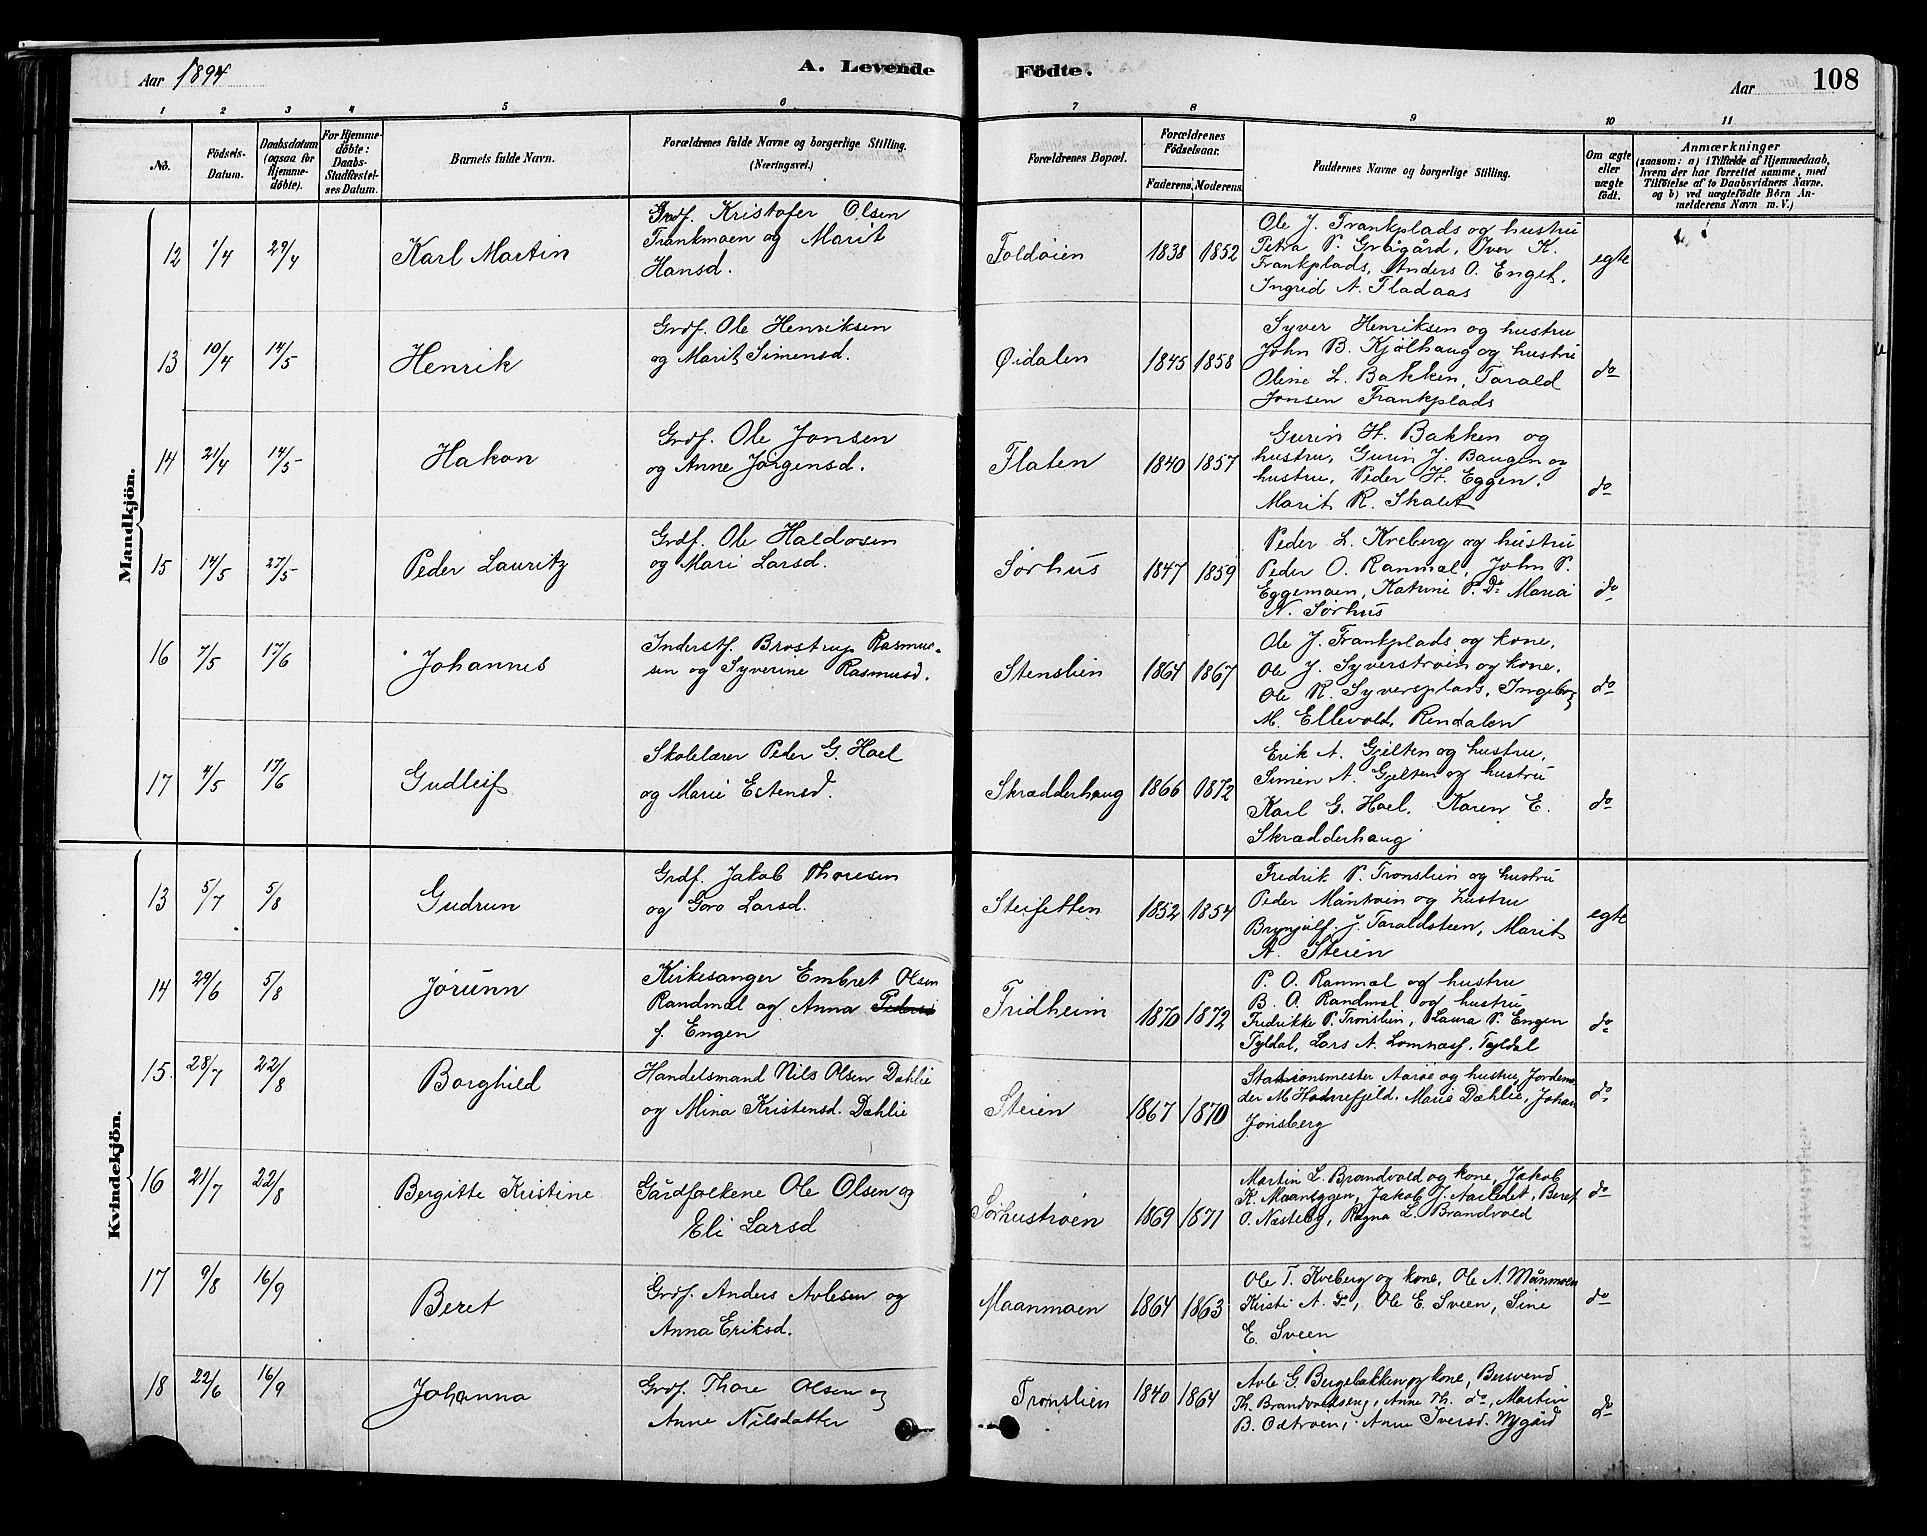 Aar 1894
A. Levende
Födte.
Aar
108
1 2 3 4 5 6 7 8 9 10 11
No.
Födsels-
Datum.
Daabsdatum
(ogsaa for
Hjemme-
döbte).
For Hjemme-
döbte:
Daabs-
Stadfæstel-
ses Datum.
Barnets fulde Navn.
Forældrenes fulde Navne og borgerlige Stilling.
(Næringsvei.)
Forældrenes Bopæl.
Forældrenes
Födselsaar.
Faderens. Moderens.
Faddernes Navne og borgerlige Stilling.
Om ægte
eller
uægte
födt.
Anmærkninger
(saasom: a) i Tilfælde af Hjemmedaab,
hvem der har forrettet samme, med
Tilföielse af to Daabsvidners Navne,
og b) ved uægtefödte Börn An-
melderens Navn m. V.)
Mandkjön.
12 1/4 29/4 Karl Martin
Grdf. Kristofer Olsen
Frankmoen og Marit
Hansd.
Foldøien 1838 1852
Ole J. Frankplads og hustru
Petra P. Grågård, Iver K.
Frankplads, Anders O. Enget,
Ingrid A. Fladaas
egte
13 10/4 14/5 Henrik
Grdf. Ole Henriksen
og Marit Simensd.
Øidalen 1845 1858
Syver Henriksen og hustru
John B. Kjølhaug og hustru
Oline L. Bakken, Tarald
Jonsen Frankplads
do
14 21/4 14/5 Hakon
Grdf. Ole Jonsen
og Anne Jørgensd.
Flaten 1840 1857
Gurin H. Bakken og
hustru, Gurin J. Baugen og
hustru, Peder H. Eggen,
Marit R. Skalet
do
15 14/5 27/5 Peder Lauritz
Grdf. Ole Haldosen
og Mari Larsd.
Sørhus 1847 1859
Peder L. Kveberg og hustru
Peder O. Ranmæl, John P.
Eggemoen, Katrine P. Do Maria
N. Sørhus
do
16 7/5 17/6 Johannes
Inderstf. Brostrup Rasmus-
sen og Syverine Rasmusd.
Stenslien 1864 1867
Ole J. Frankplads og kone,
Ole J. Syverstrøen og kone,
Ole R. Syversplads, Ingeborg
M. Ellevold, Rendalen
do
17 4/5 17/6 Gudleif
Skolelærer Peder G. Hoel
og Marie Estensd.
Skrædderhaug 1866 1872
Erik A. Gjelten og hustru,
Simen A. Gjelten og hustru
Karl G. Hoel, Karen E.
Skrædderhaug
do
Kvindekjön.
13 5/7 5/8 Gudrun
Grdf. Jakob Thoresen
og Goro Larsd.
Steifetten 1852 1854
Fredrik P. Tronslien og hustru
Peder Måntrøen og hustru
Brynjulf J. Taraldsteen, Marit
A. Steien
egte
14 29/6 5/8 Jørunn
Kirkesanger Embret Olsen
Randmæl og Anna Pedersd
f. Engen
Fridheim 1870 1872
P. O. Ranmæl og hustru
B. O. Randmæl og hustru
Fredrikke P. Tronslien, Laura P. Engen
Tyldal, Lars A. Lomnæsf. Tyldal
do
15. 28/7 22/8 Borghild
Handelsmand Nils Olsen Dæhlie
og Mina Kristensd. Dæhlie
Steien 1867 1870
Stationsmester Aarøe og hustru, Jordemo-
der M. Hodnefjeld. Marie Dæhlie, Johan
Jonsberg
do
16 21/7 22/8 Bergitte Kristine
Gårdfolkene Ole Olsen og
Eli Larsd
Sørhustrøen 1869 1871
Martin L. Brandvold og kone, Jakob
K. Maaneggen, Jakob J. Aasledet, Beret
O. Næsteby, Ragna L. Brandvold
do
17 9/8 16/9 Beret
Grdf. Anders Avlesen og
Anna Eriksd.
Maanmoen 1864 1863
Ole T. Kveberg og kone, Ole A. Månmoen
Kirsti A. Do, Ole E. Sveen, Sine
E. Sveen
do
18 22/6 16/9 Johanna
Grdf. Thore Olsen og
Anne Nilsdatter
Tronslien 1840 1864
Avle G. Bergebakken og kone, Bersvend
Th. Brandvoldseng, Anne Th. do, Martin
B. Odtrøen, Anne Iversd. Nygård
do